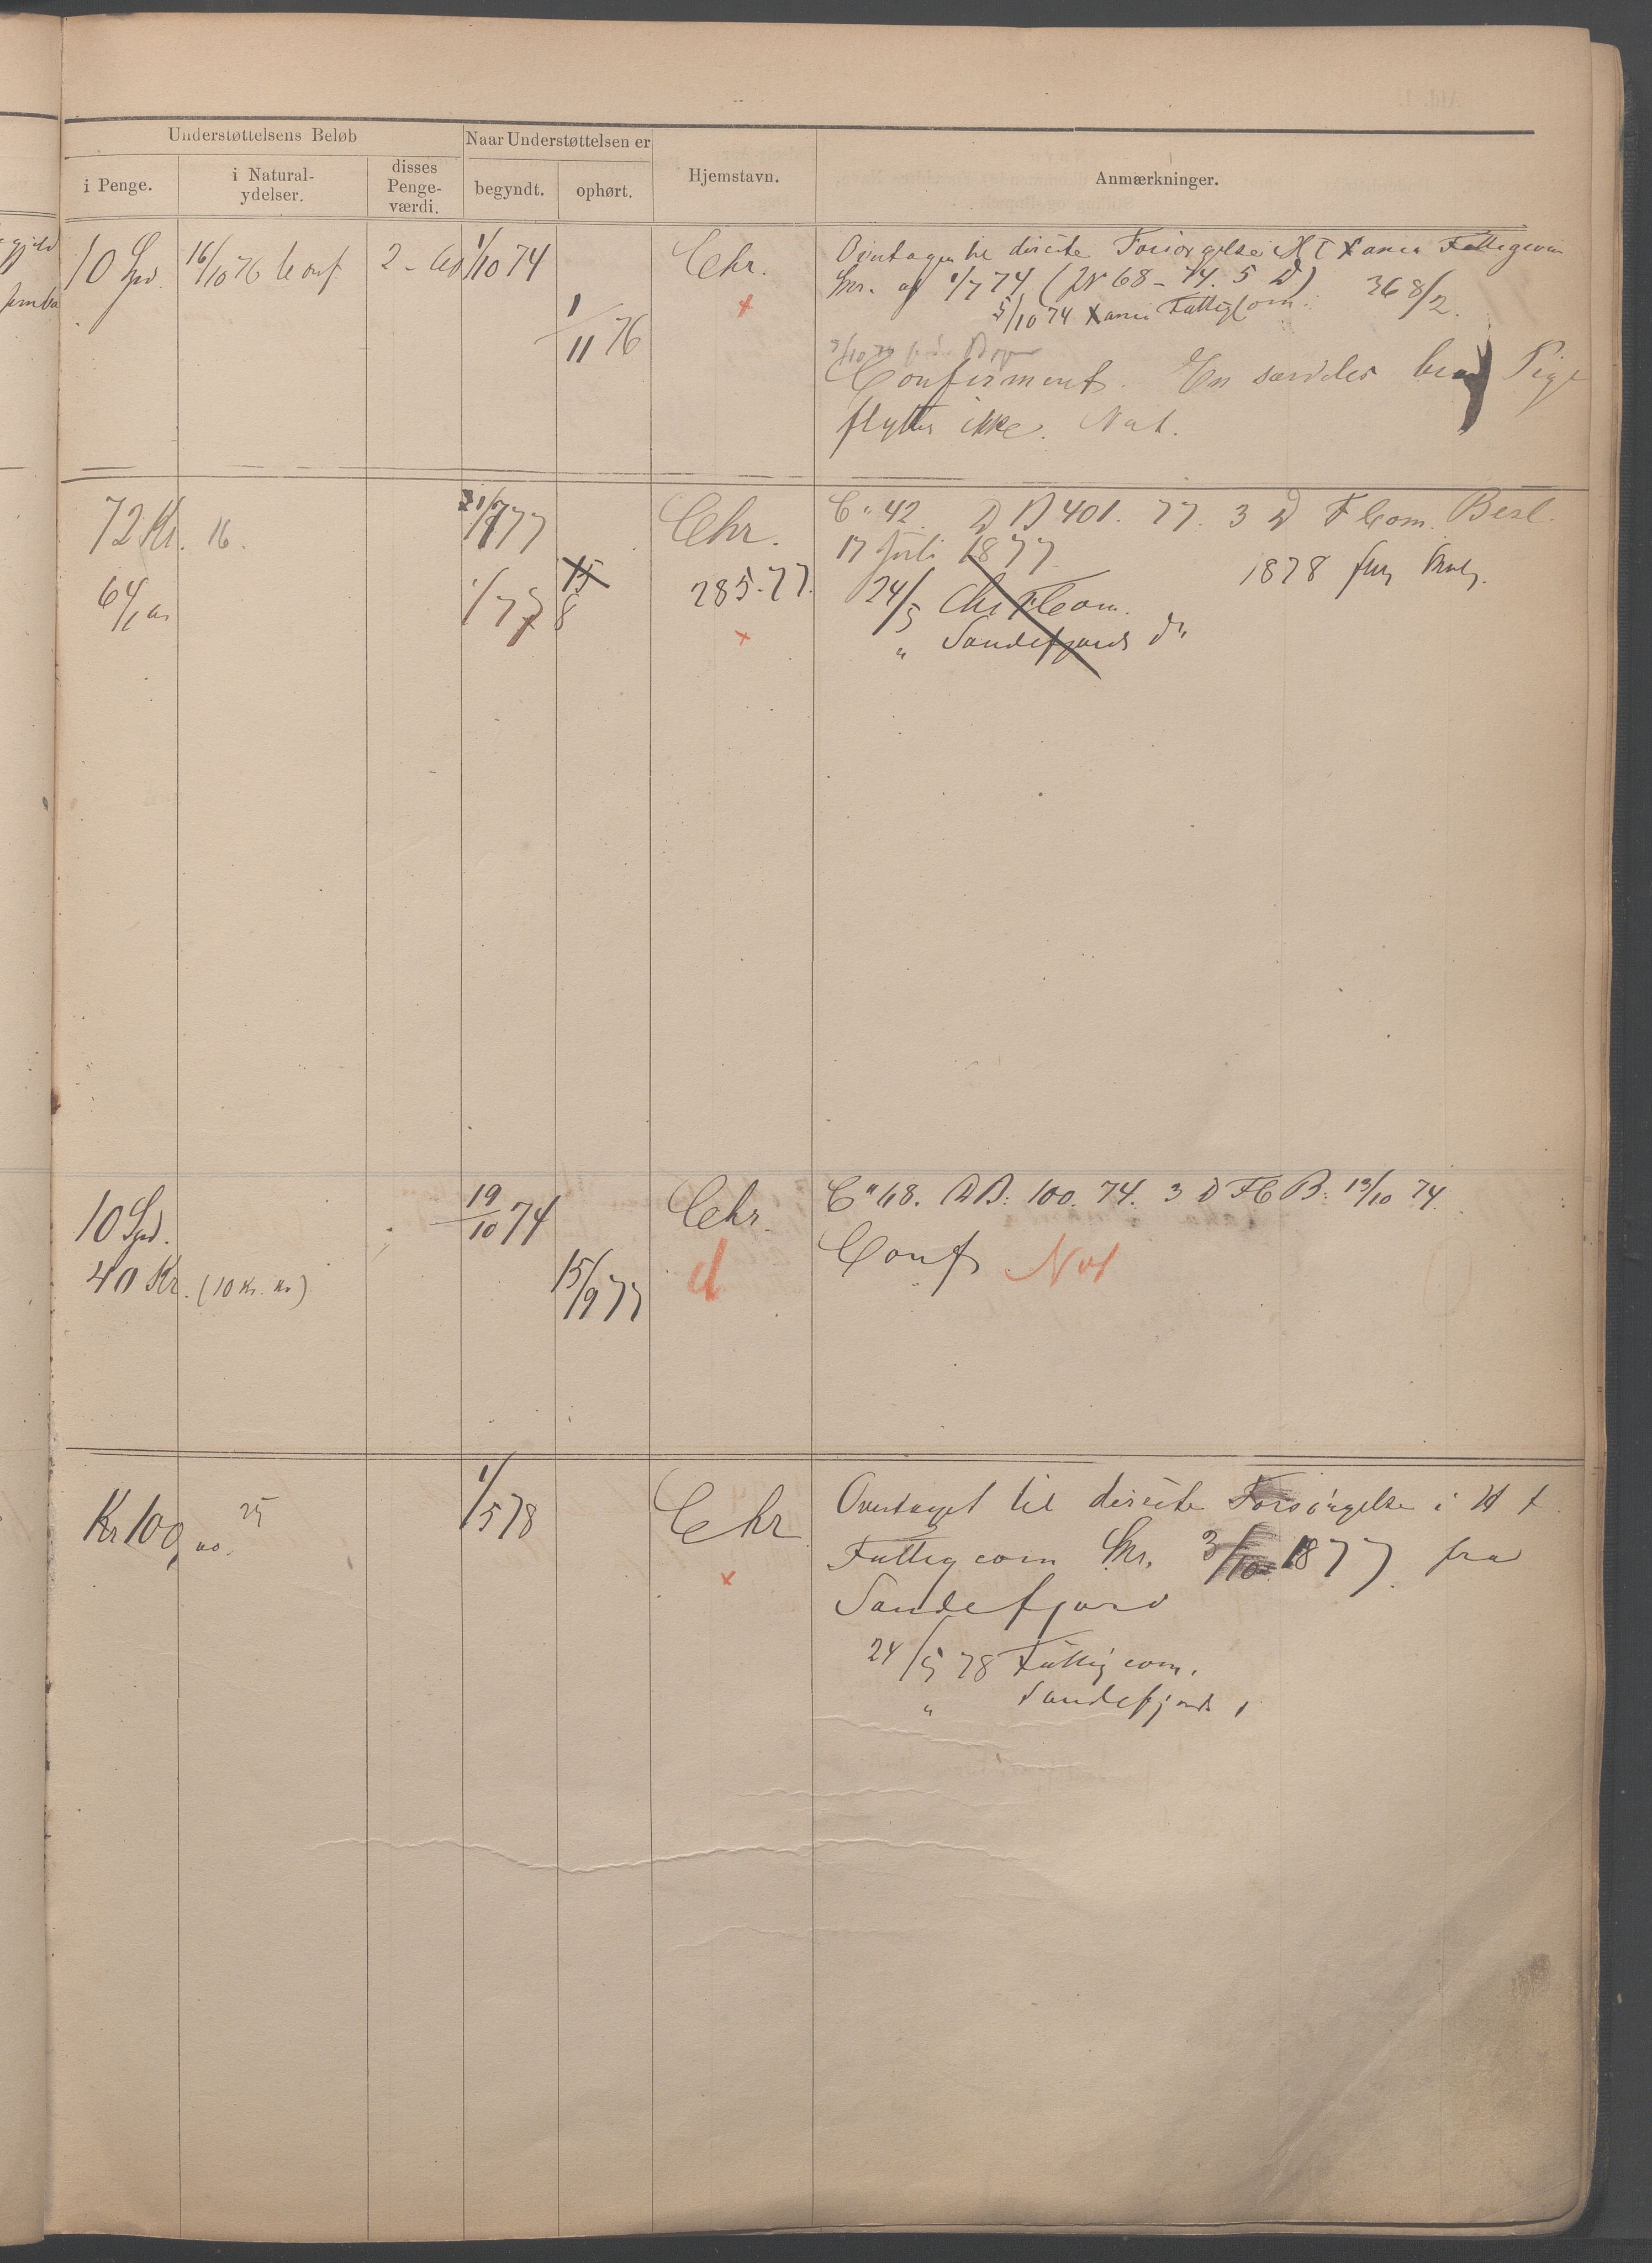 Understøttelsens Beløb
Naar Understøttelsen er
Hjemstavn.
Anmærkninger.
i Penge.
i Natural-
ydelser.
disses
Penge-
værdi.
begyndt.
ophørt.
10 Spd.
16/10 76 Conf.
2 -
1/10 74
1/11 76
Chr.
x
til directe Forsørgelse
af 1/7 74 ( № 68 - 74. 5 D) 368/2.
5/10 74 Xania Fattigcom.
Confirment. En særdeles Pige
flytter ikke. Not.
72 Kr. 16.
1/7 77
Chr.
C " 42. D D 401. 77. 3 D F Com. Besl.
17 Juli 1877.
64/100
1/7 78
15
8
285-77.
x
1878
24/5 Chr F Com.
" Sandefjords do
10 Spd.
19/10 74
Chr.
C " 48. D D: 100. 74. 3 D F C B: 13/10 74.
40 Kr. (10 Kr. Kv)
15/9 77
d
Conf. Not
Kr 100, 00. 25
1/5 78
Chr
x
Overtaget til directe Forsørgelse i
Fattigcom Skr. 3/10 1877 fra
Sandefjord
24/5 78 Fattigcom.
" Sandefjords